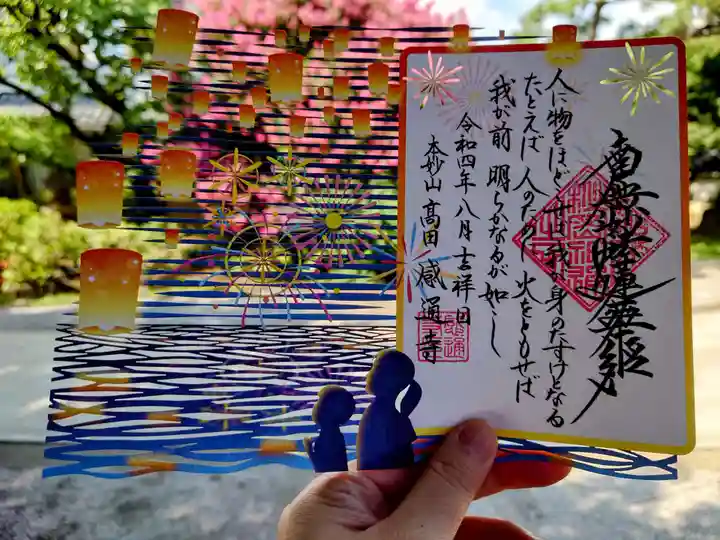 南無妙法蓮華経
人に物をほどこせば我が身のたすけとなる
たとえば 人のために 火をともせば
我が前 明らかなるが如し
令和四年八月吉祥日
本妙山 髙田 感通寺